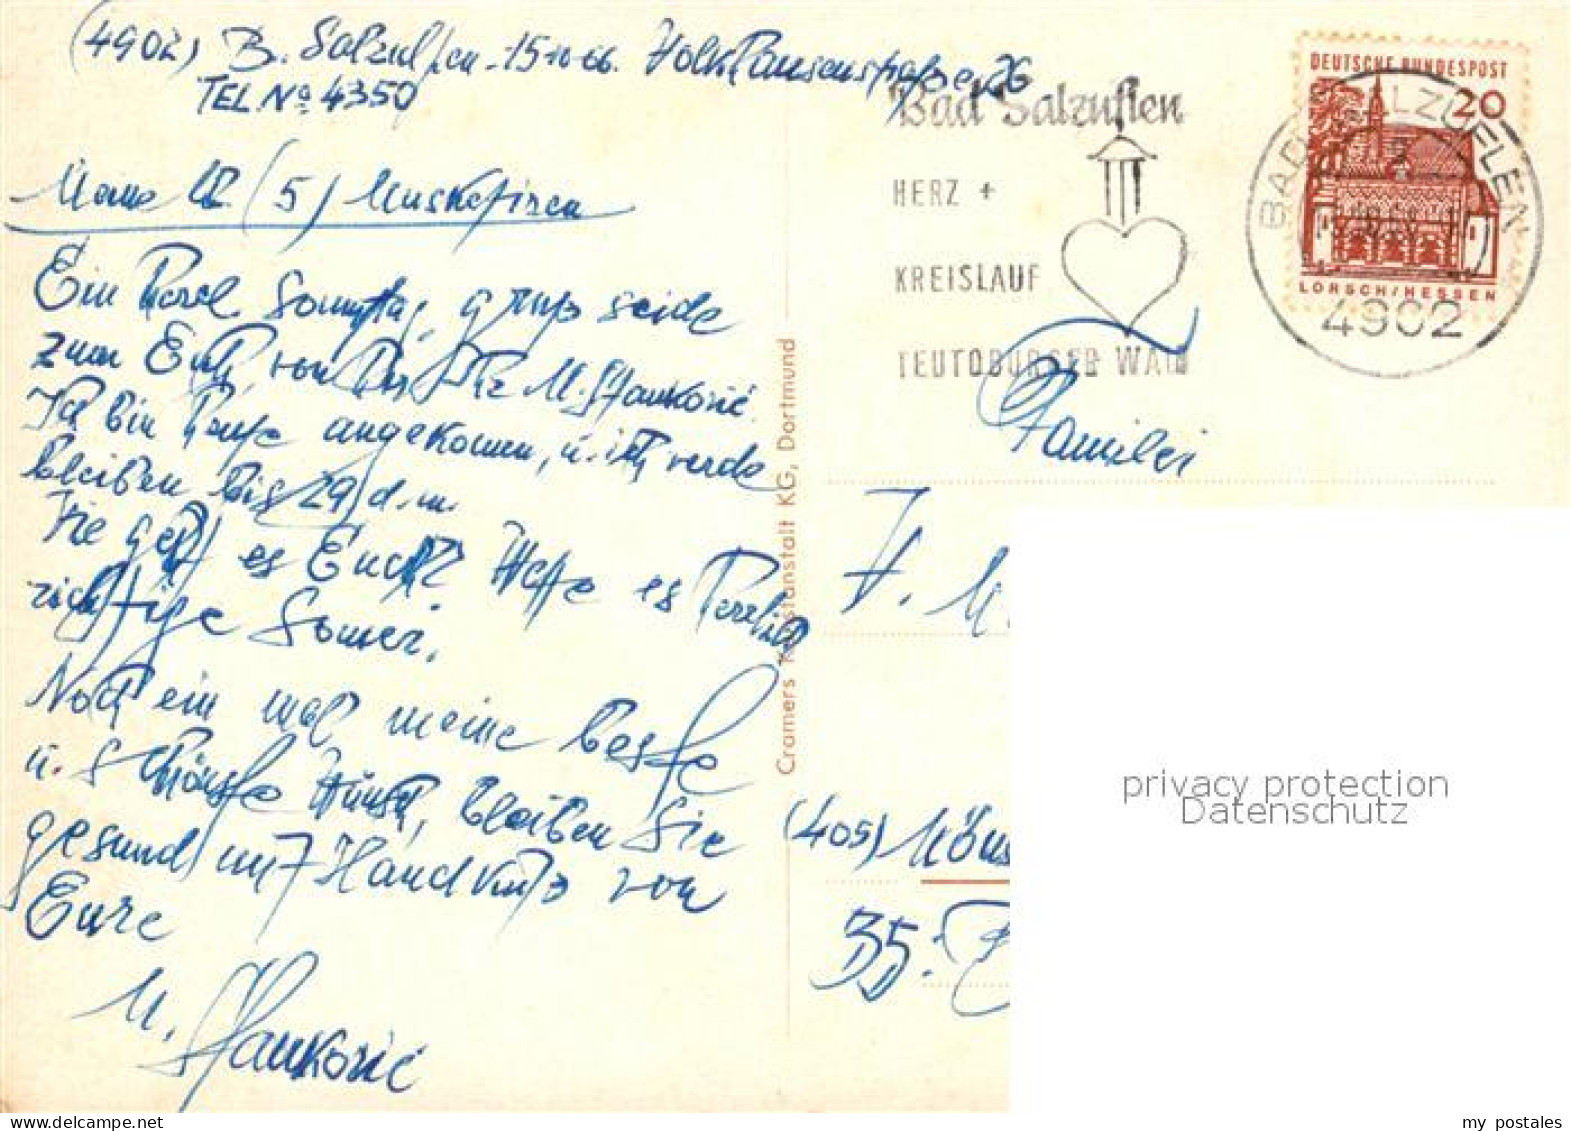 (4902) B. Salzuflen - 15-10-66. Volkhausenstraße 26
TEL No 4350
Meine (5) Musketiren
Ein Sonnentag, gruß
zum von M. Stanković
Ich bin angekommen, u. ich werde
bleiben bis 29 d. m.
Wie geht es Euch? Hoffe es
richtige Somer.
Noch ein mal meine beste
u. schönste Wünsch, bleiben Sie
gesund mit Handkuß von
Eure
M. Stanković
Cramers Kunstanstalt KG, Dortmund
Bad Salzuflen
HERZ +
KREISLAUF
TEUTOBURGER WALD
DEUTSCHE BUNDESPOST
20
LORSCH/HESSEN
BAD SALZUFLEN
4902
Familei
(405) Möns
35.
privacy protection
Datenschutz
my postales